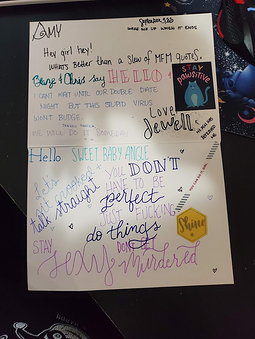 AMY
September, 2020
WAKE ME UP WHEN IT ENDS
Hey girl hey!
WHAT'S BETTER than a slew of MFM QUOTES.
& Chris say HELLO!
I CAN'T WAIT UNTIL OUR DOUBLE DATE
NIGHT BUT THIS STUPID VIRUS
WONT BUDGE.
WE WILL DO IT SOMEDAY
STAY
PAWSITIVE
Love
Jewell
Hello SWEET BABY ANGLE
Let's
get
talk straight
YOU DON'T
HAVE TO BE
perfect
JUST FUCKING
do things
Shine
STAY
Sexy DON'T GET
Murdered